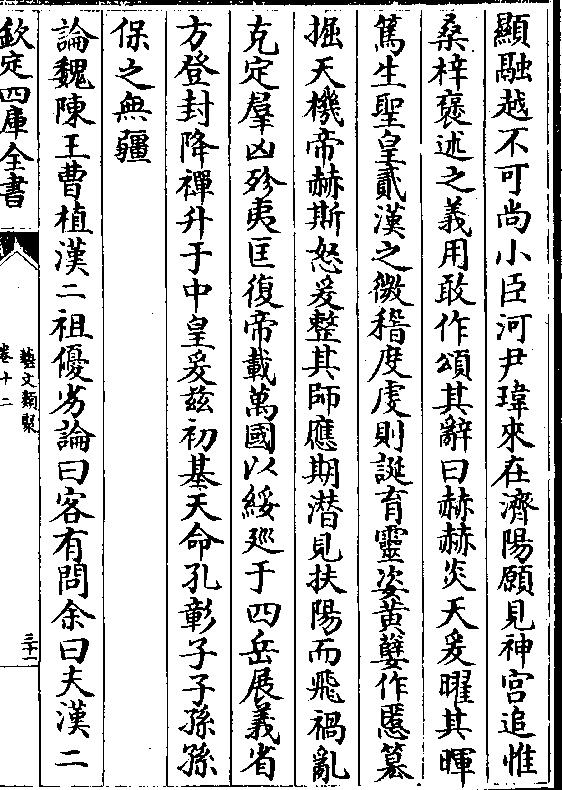 顯融越不可尚小臣河尹瑋來在濟陽願見神宫追惟
桑梓褒述之義用敢作頌其辭曰赫赫炎天爰曜其暉
篤生聖皇貳漢之微稽度虔則誕育靈姿黄孽作慝篡
握天機帝赫斯怒爰整其師應期潛見扶陽而飛禍亂
克定羣凶殄夷匡復帝載萬國以綏廵于四岳展義省
方登封降禪升于中皇爰兹初基天命孔彰子子孫孫
保之無疆
論魏陳王曹植漢二祖優劣論曰客有問余曰夫漢二
欽定四庫全書
藝文類聚
卷十二
三十一